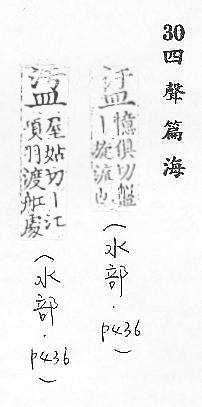 30四聲篇海
盓
憶俱切盤
｜旋流也
(水部.p436)
屋姑切｜江
項羽渡舡處
(水部.p436)